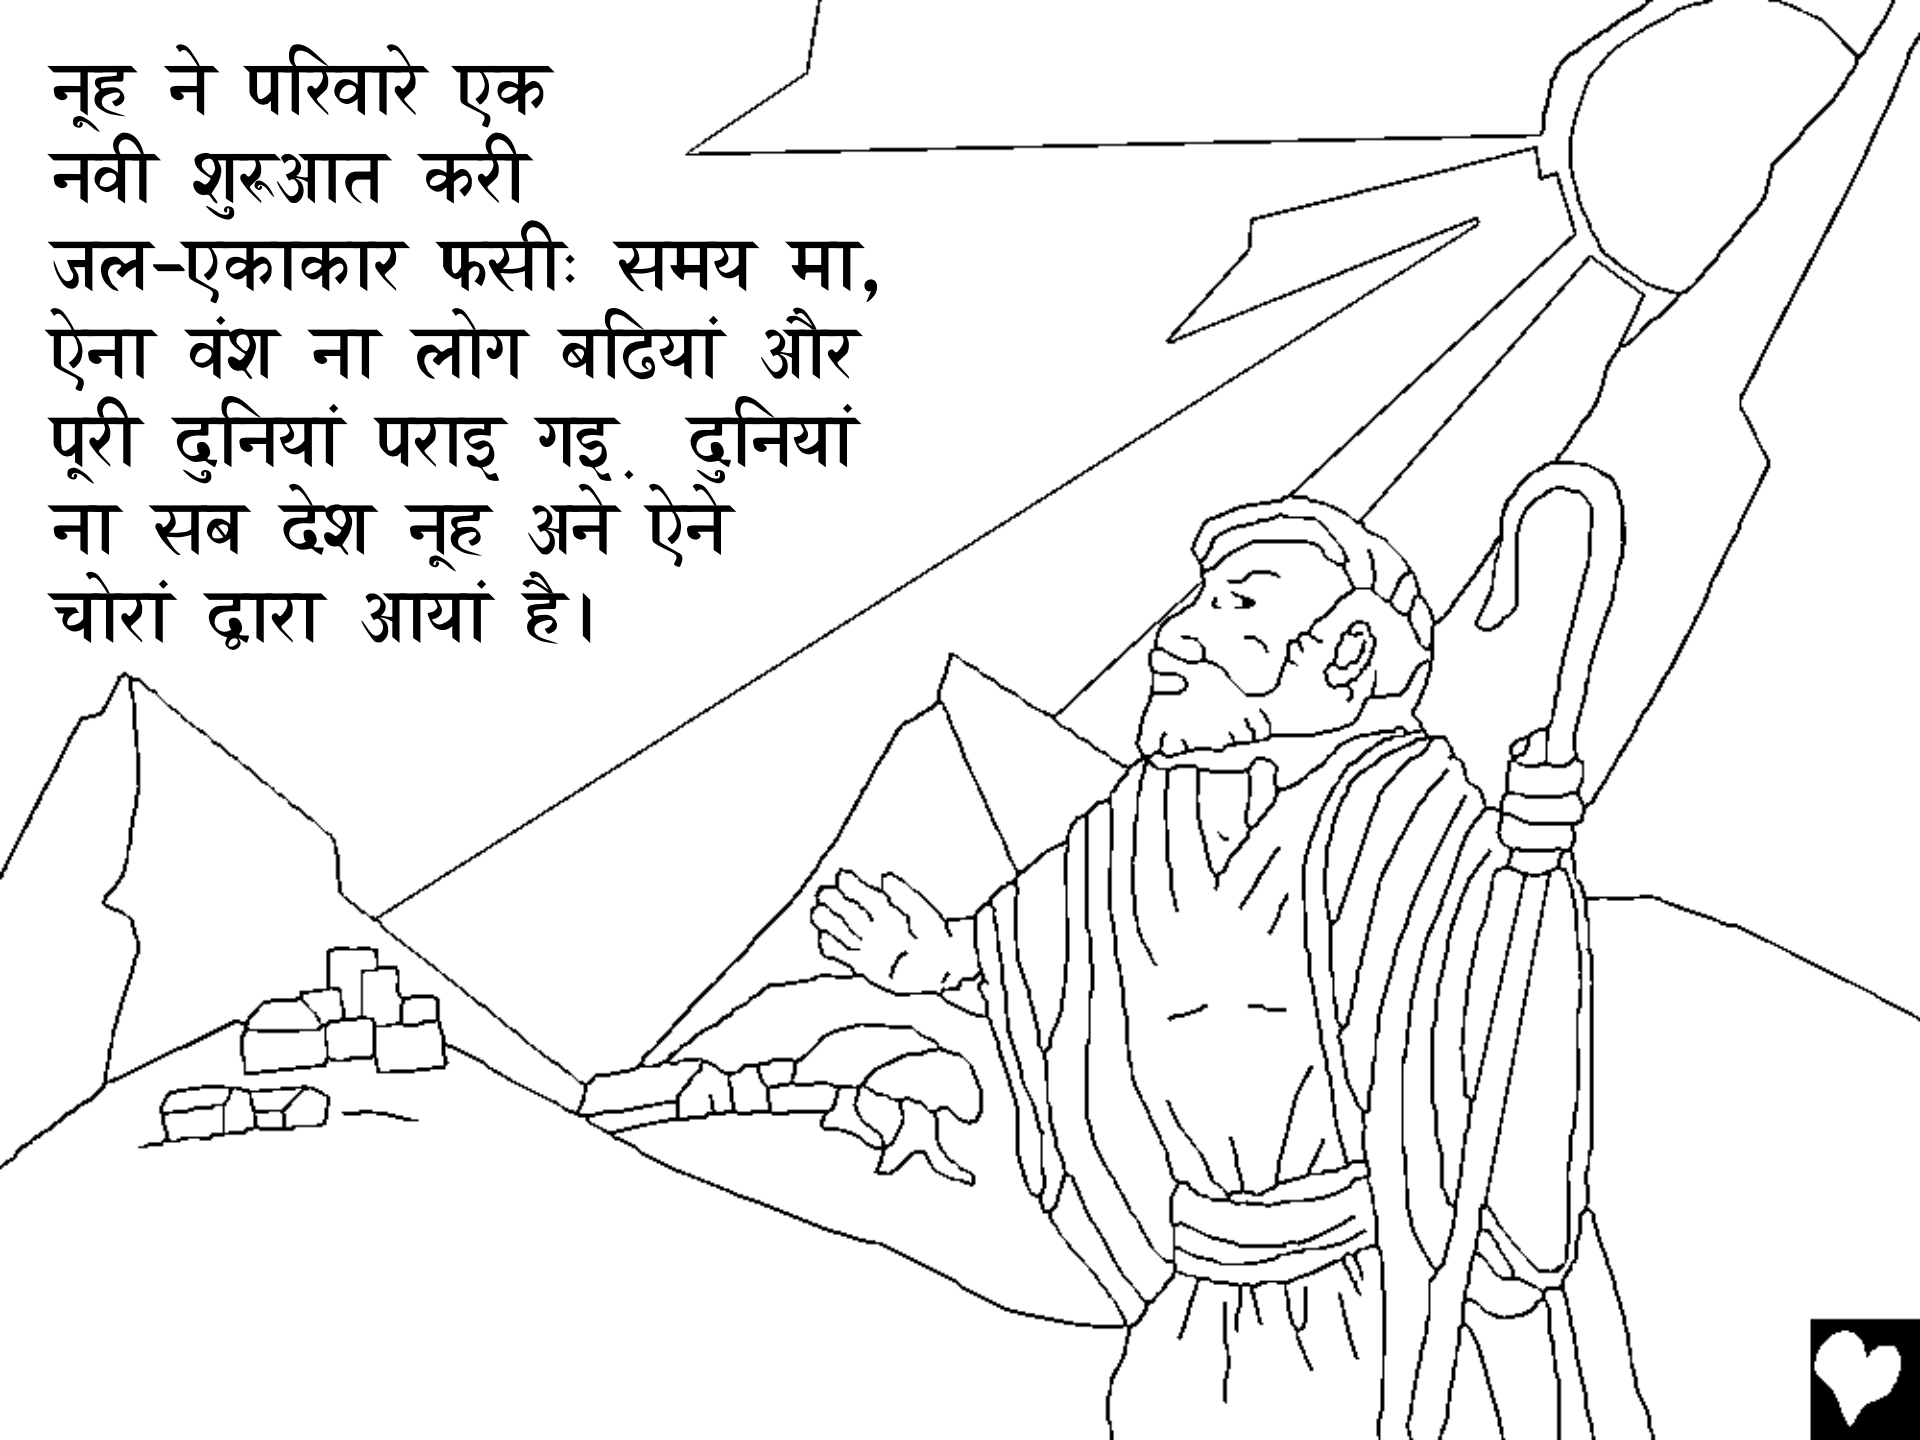 नूह ने परिवारे एक
नवी शुरुआत करी
जल-एकाकार फसीः समय मा,
ऐना वंश ना लोग बढियां और
पूरी दुनियां पराइ गइ. दुनियां
ना सब देश नूह अने ऐने
चोरां द्वारा आयां है।